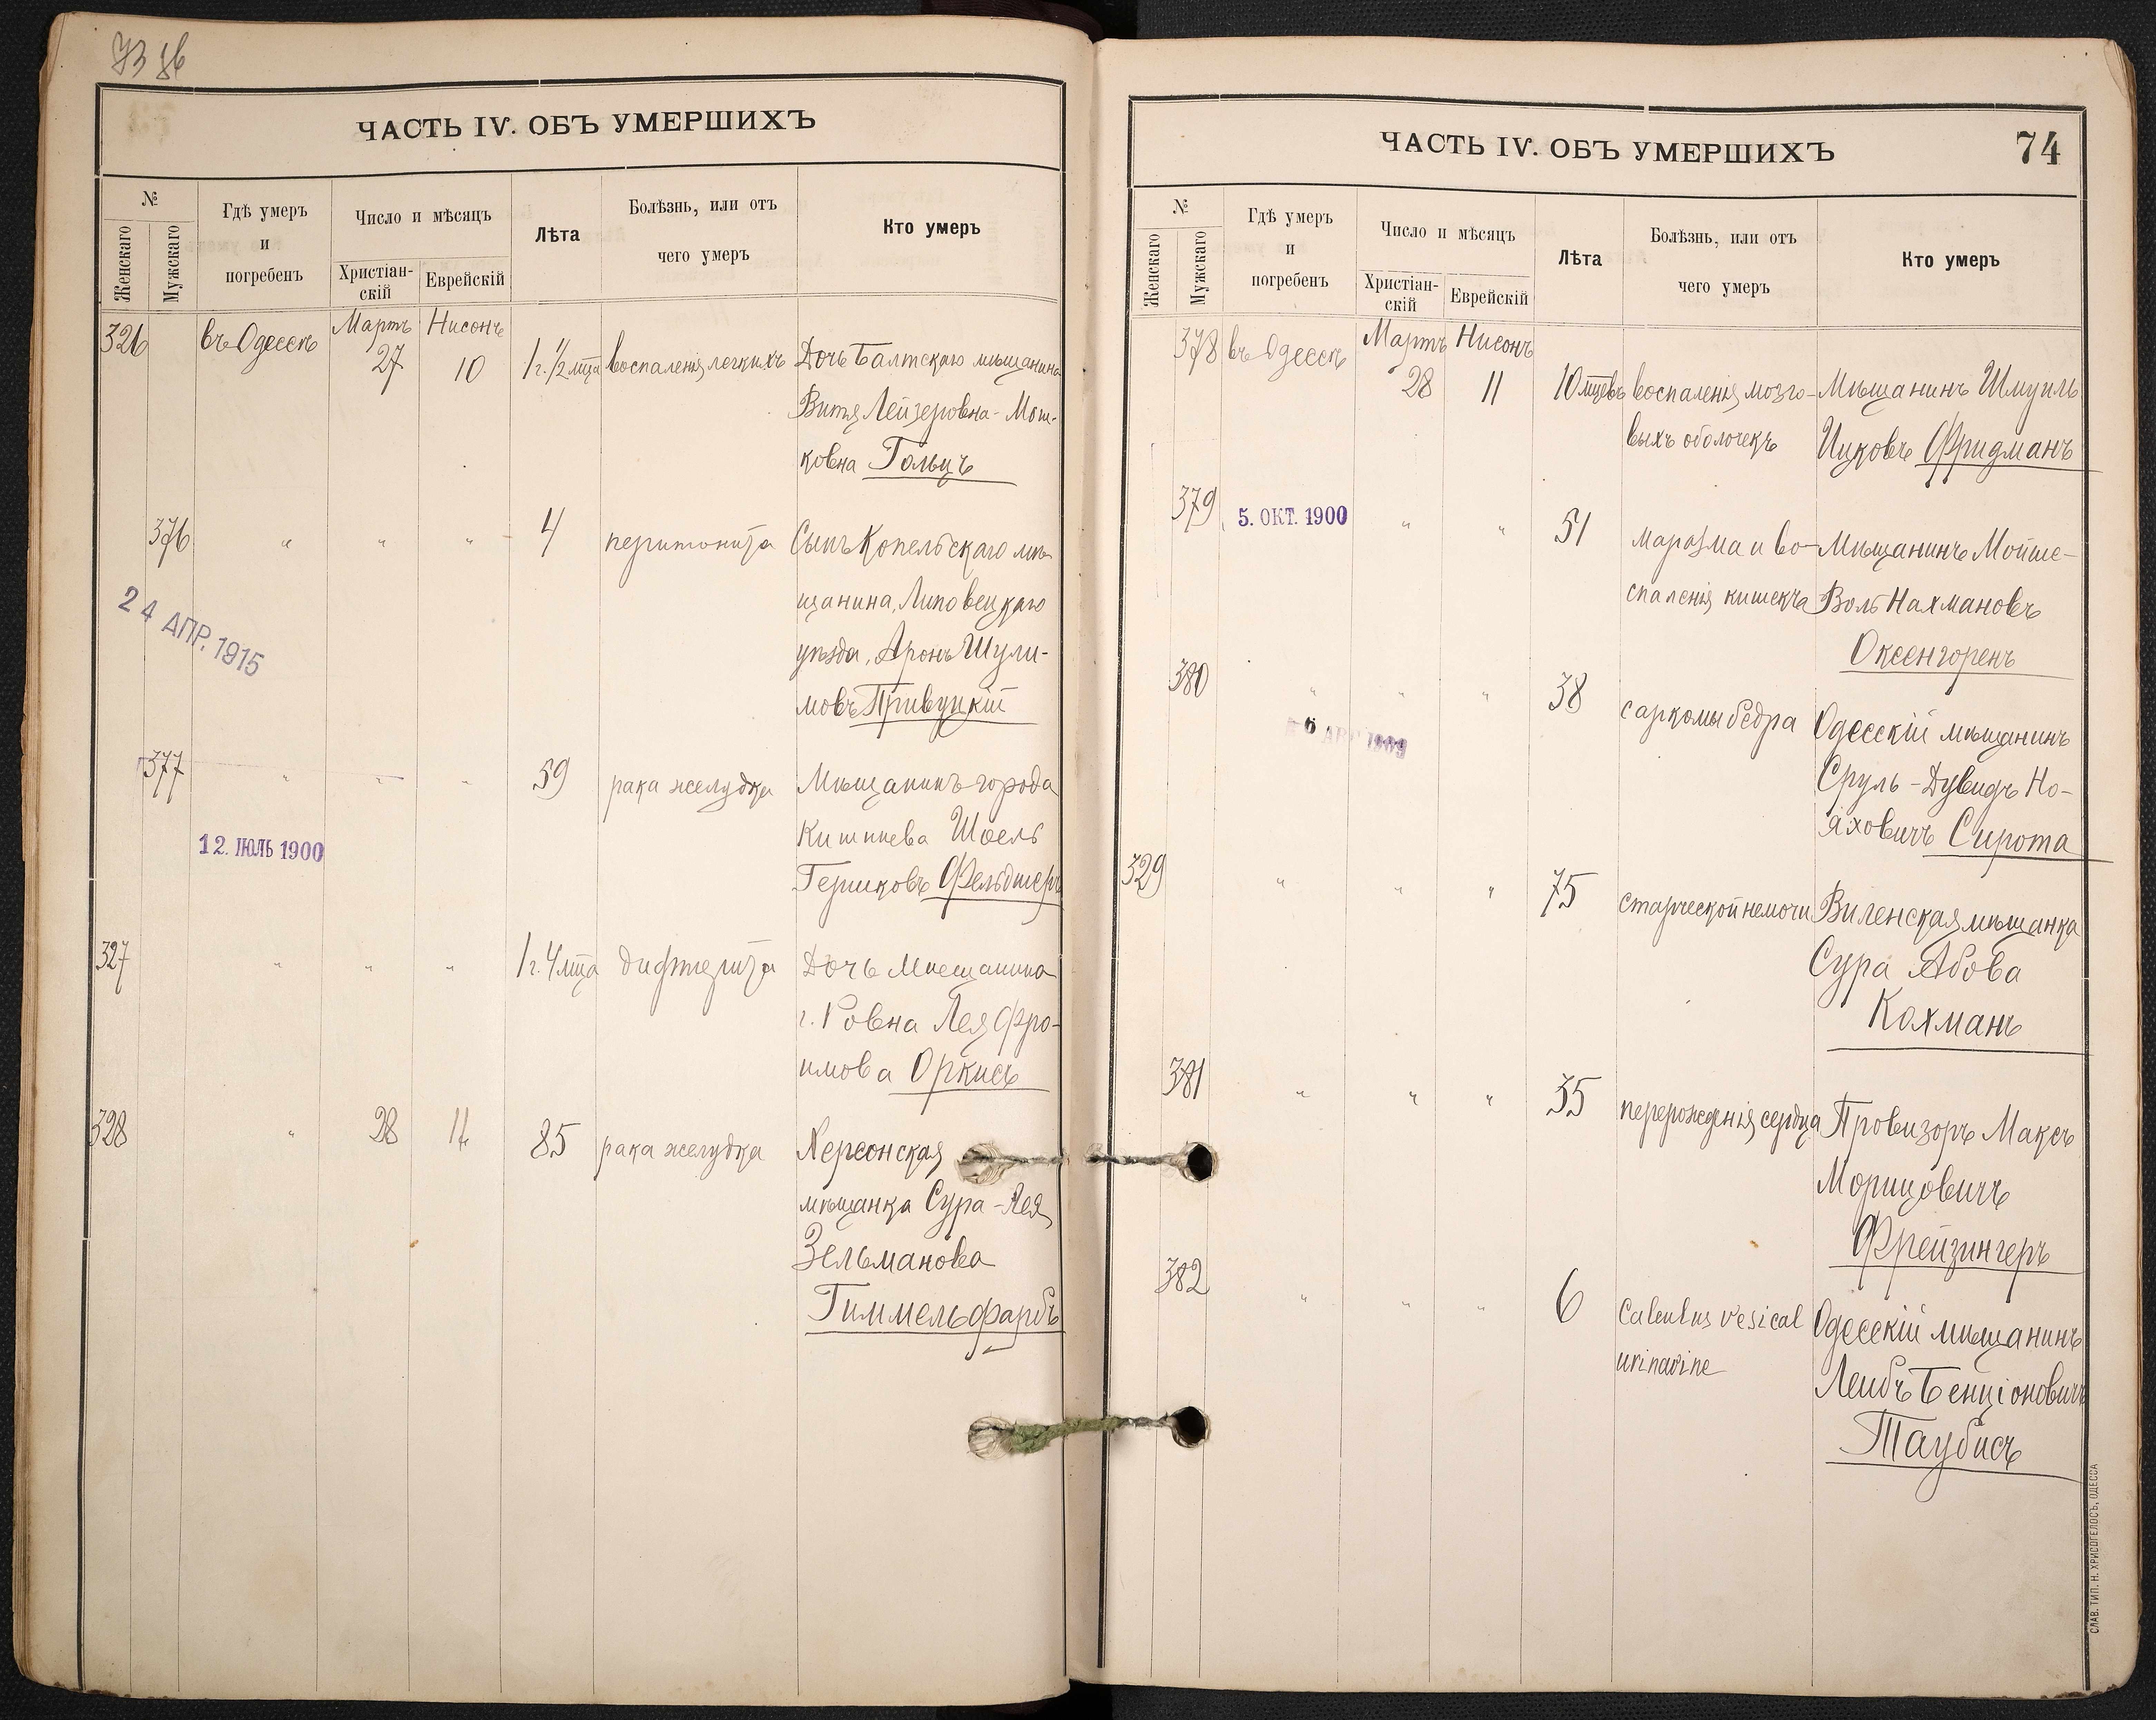 73 об
ЧАСТЬ IV. ОБЪ УМЕРШИХЪ
№
Женскаго
Мужскаго
Гдѣ умеръ
и
погребенъ
Число и мѣсяцъ
Христіан-
скій
Еврейскій
Лѣта
Болѣзнь, или отъ
чего умеръ
Кто умеръ
326 въ Одессѣ Мартъ Нисонъ
27 10 1 г. ½ мца воспаленія легкихъ Дочь Балтскаго мѣщанина
Витя Лейзеровна-Мош-
ковна Гольцъ
376 " " " 4 перитонита Сынъ Копельскаго мѣ-
щанина, Липовецкаго
уѣзда, Аронъ Шули-
мовъ Привуцкій
24 АПР. 1915
377 " " " 59 рака желудка Мѣщанинъ города
Кишинева Шоель
Гершковъ Фельдшеръ
12. ІЮЛЬ 1900
327 " " " 1 г. 4 мца дифтерита Дочь Мѣщанина
г. Ровна Лея Фро-
имова Оркисъ
328 " 28 11 85 рака желудка Херсонская
мѣщанка Сура-Лея
Зельманова
Гиммельфарбъ
ЧАСТЬ IV. ОБЪ УМЕРШИХЪ
74
№
Женскаго
Мужскаго
Гдѣ умеръ
и
погребенъ
Число и мѣсяцъ
Христіан-
скій
Еврейскій
Лѣта
Болѣзнь, или отъ
чего умеръ
Кто умеръ
378 въ Одессѣ Мартъ Нисонъ
28 11 10 мцевъ воспаленія мозго- Мѣщанинъ Шмуиль
выхъ оболочекъ Ицковъ Фридманъ
379 5. ОКТ. 1900 " " 51 маразма и во- Мѣщанинъ Мойше-
спаленія кишекъ Воль Нахмановъ
Оксенгоренъ
380 " " " 38 саркомы бедра Одесскій мѣщанинъ
Сруль-Дувидъ Но-
яховичъ Сирота
1909
329 " " " 75 старческой немочи Виленская мѣщанка
Сура Абова
Кохманъ
381 " " " 35 перерожденія сердца Провизоръ Максъ
Морицовичъ
Фрейзингеръ
382 " " " 6 Calculus vesical Одесскій мѣщанинъ
urinarine Лейбъ Бенціоновичъ
Таубисъ
СЛАВ. ТИП. Н. ХРИСОГЕЛОСЪ, ОДЕССА